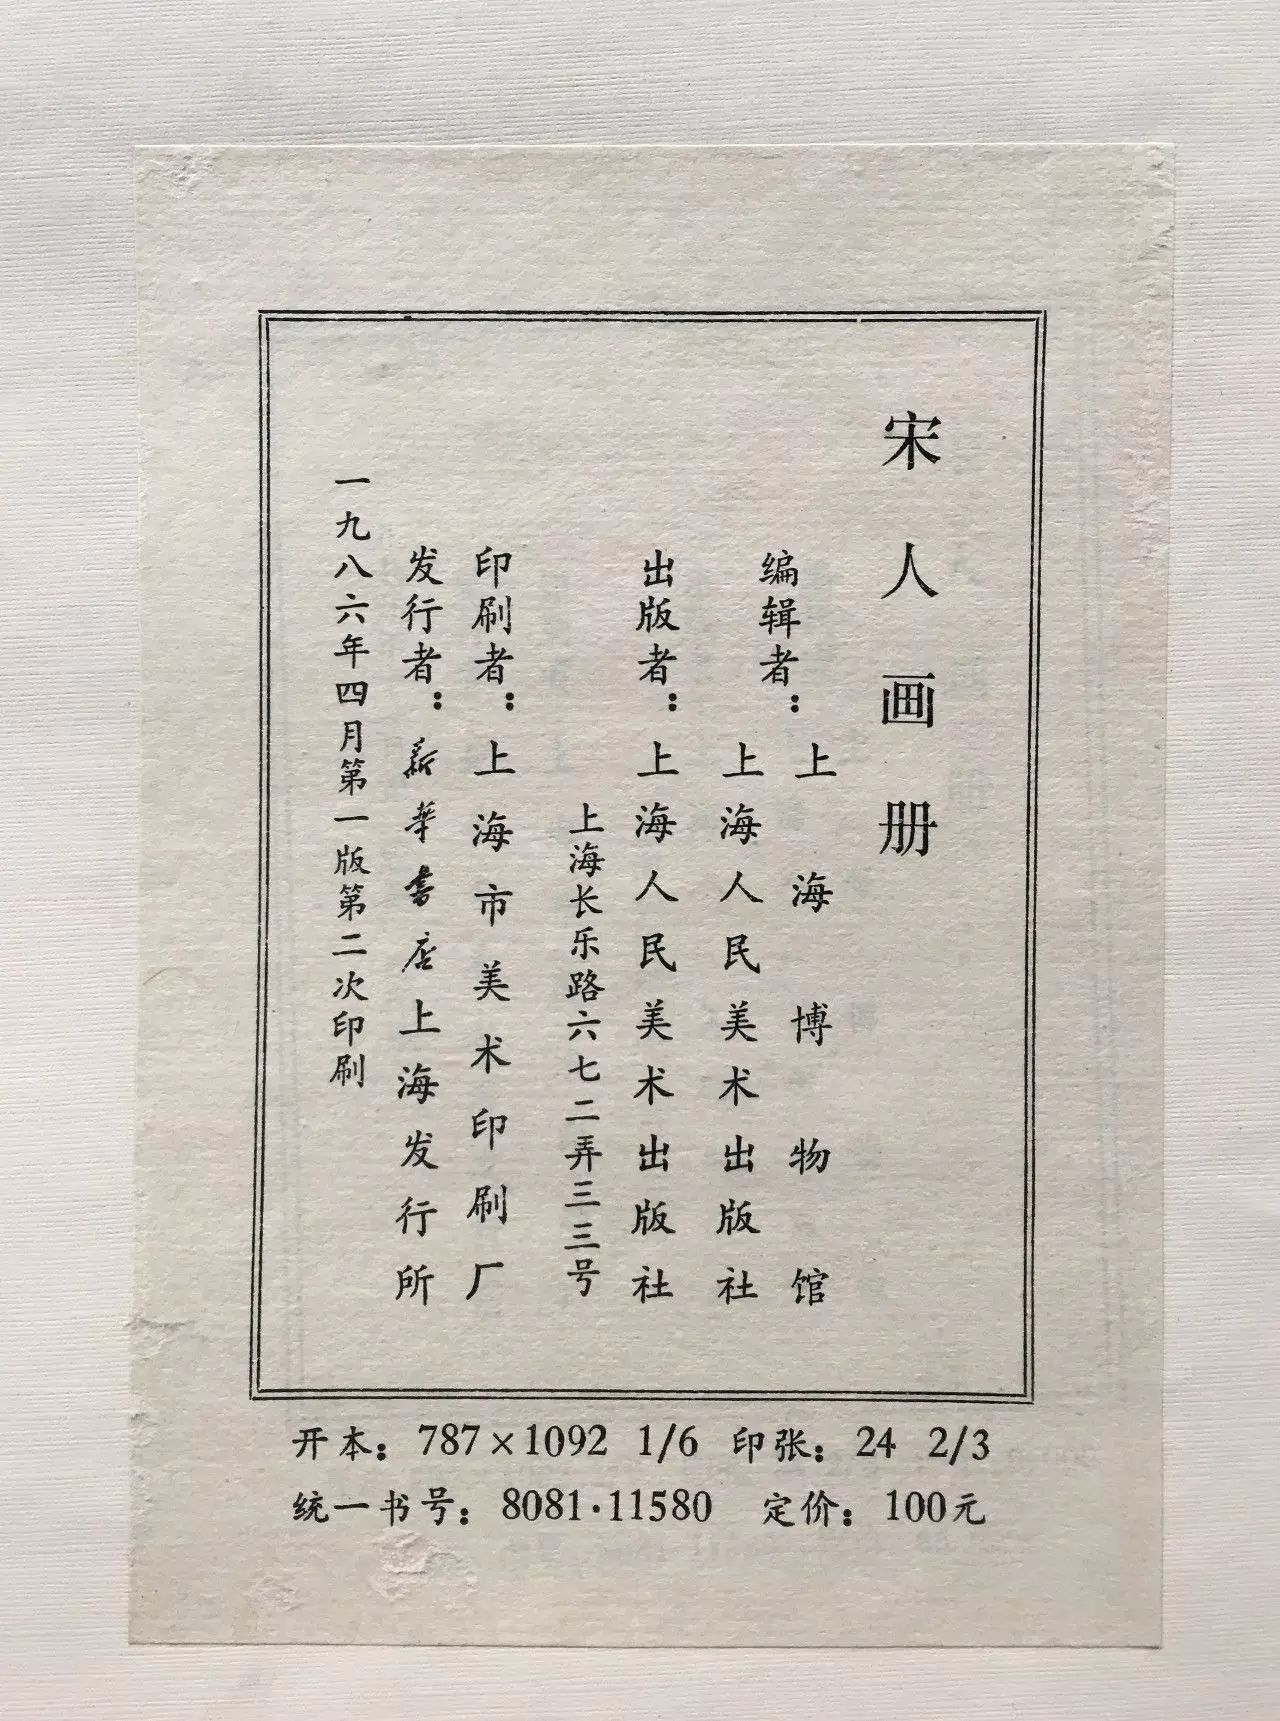 宋人画册
编辑者：上海博物馆
上海人民美术出版社
出版者：上海人民美术出版社
上海长乐路六七二弄三三号
印刷者：上海市美术印刷厂
发行者：新華書店上海发行所
一九八六年四月第一版第二次印刷
开本：787×1092 1/6 印张：24 2/3
统一书号：8081·11580 定价：100元